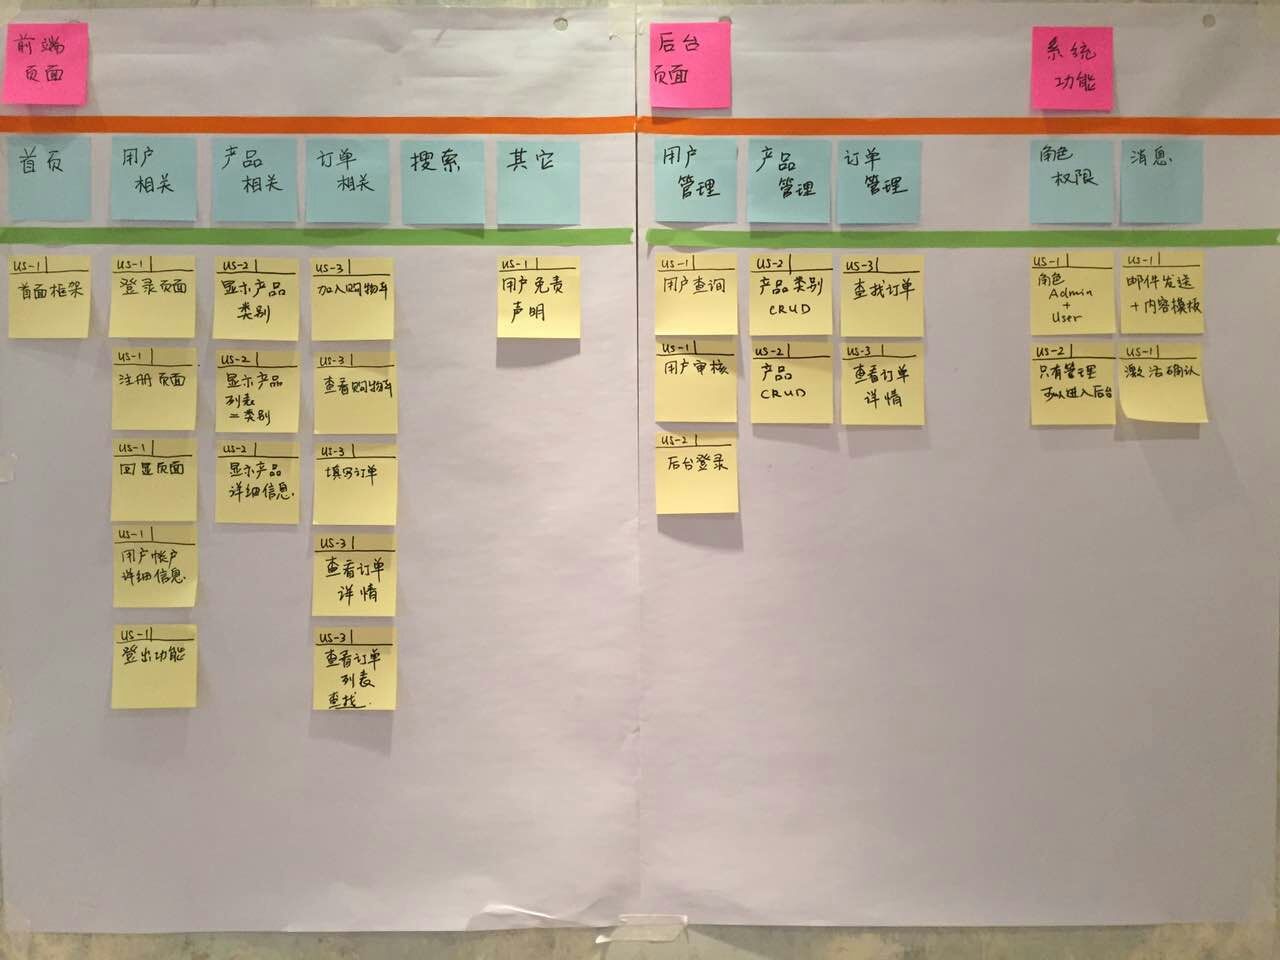 前端
页面
后台
页面
系统
功能
首页
用户
相关
产品
相关
订单
相关
搜索
其它
用户
管理
产品
管理
订单
管理
角色
权限
消息
US-1
首面框架
US-1
登录页面
US-1
注册页面
US-1
回显页面
US-1
用户帐户
详细信息
US-1
登出功能
US-2
显示产品
类别
US-2
显示产品
列表
=类别
US-2
显示产品
详细信息
US-3
加入购物车
US-3
查看购物车
US-3
填写订单
US-3
查看订单
详情
US-3
查看订单
列表
查找
US-1
用户免责
声明
US-1
用户查询
US-1
用户审核
US-2
后台登录
US-2
产品类别
CRUD
US-2
产品
CRUD
US-3
查找订单
US-3
查看订单
详情
US-1
角色
Admin
+
User
US-2
只有管理
可以进入后台
US-1
邮件发送
+内容模板
US-1
激活确认